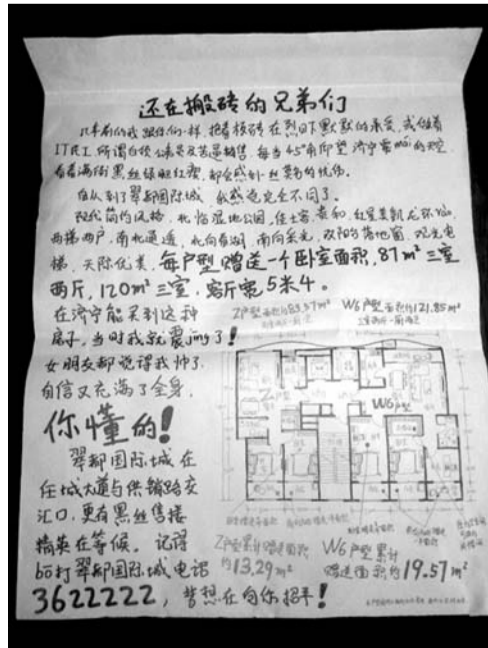 还在搬砖的兄弟们
几年前的我跟你们一样,抱着板砖在烈日下默默的承受,或做着
IT民工,所谓白领,公务员及苦逼销售,每当45°角仰望济宁
看着满街黑丝绿眼红唇,都会感到一丝莫名的忧伤。
自从到了翠都国际城,我感觉完全不同了。
现代简约风格,北临湿地公园,佳士客,贵和,红星美凯龙环绕,
两梯两户,南北通透,北向看湖,南向采光,双阳台落地窗,观光电
梯,天际优美,每户型赠送一个卧室面积,87m²三室
两厅,120m²三室,客厅宽5米4。
在济宁能买到这种
房子,当时我就震jing了!
女朋友都说得我帅了,
自信又充满了全身,
你懂的!
翠都国际城在
任城大道与供销路交
汇口,更有黑丝售楼
精英在等候。记得
bo打翠都国际城电话
3622222,梦想在向你招手!
Z户型面积约83.57m²
W6户型面积约121.85m²
三室两厅一厨两卫
Z户型
W6户型
Z户型累计赠送面积
约13.29m²
W6户型累计
赠送面积约19.57m²